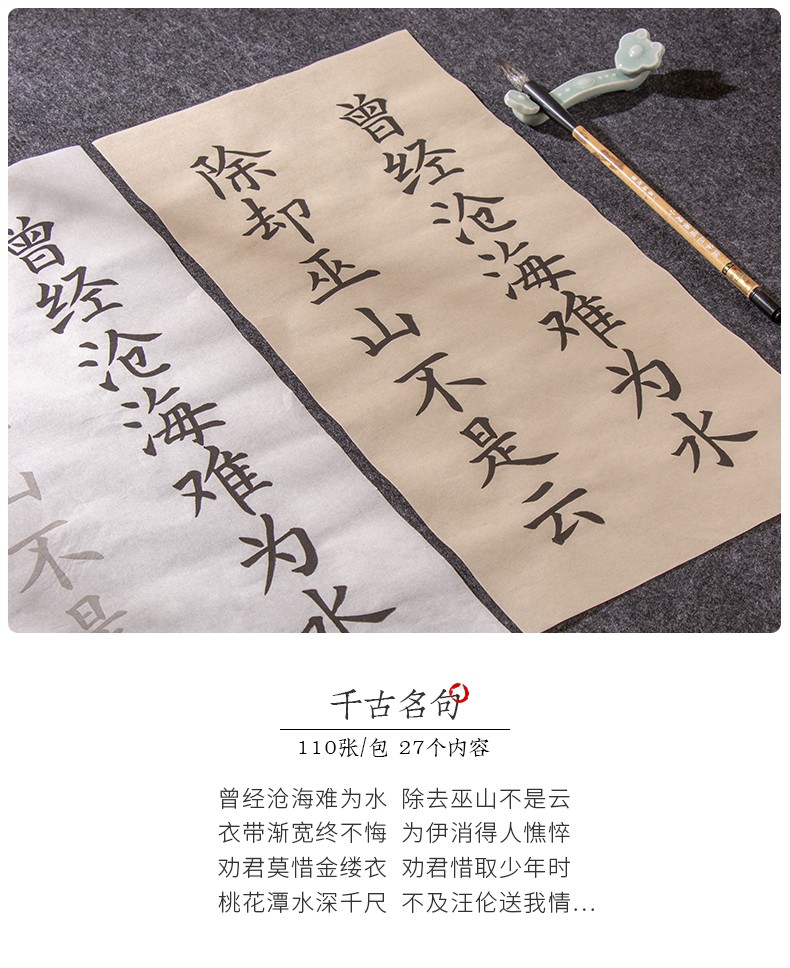 曾经沧海难为水
除却巫山不是云
曾经沧海难为水
山不是
千古名句
110张/包 27个内容
曾经沧海难为水 除去巫山不是云
衣带渐宽终不悔 为伊消得人憔悴
劝君莫惜金缕衣 劝君惜取少年时
桃花潭水深千尺 不及汪伦送我情...